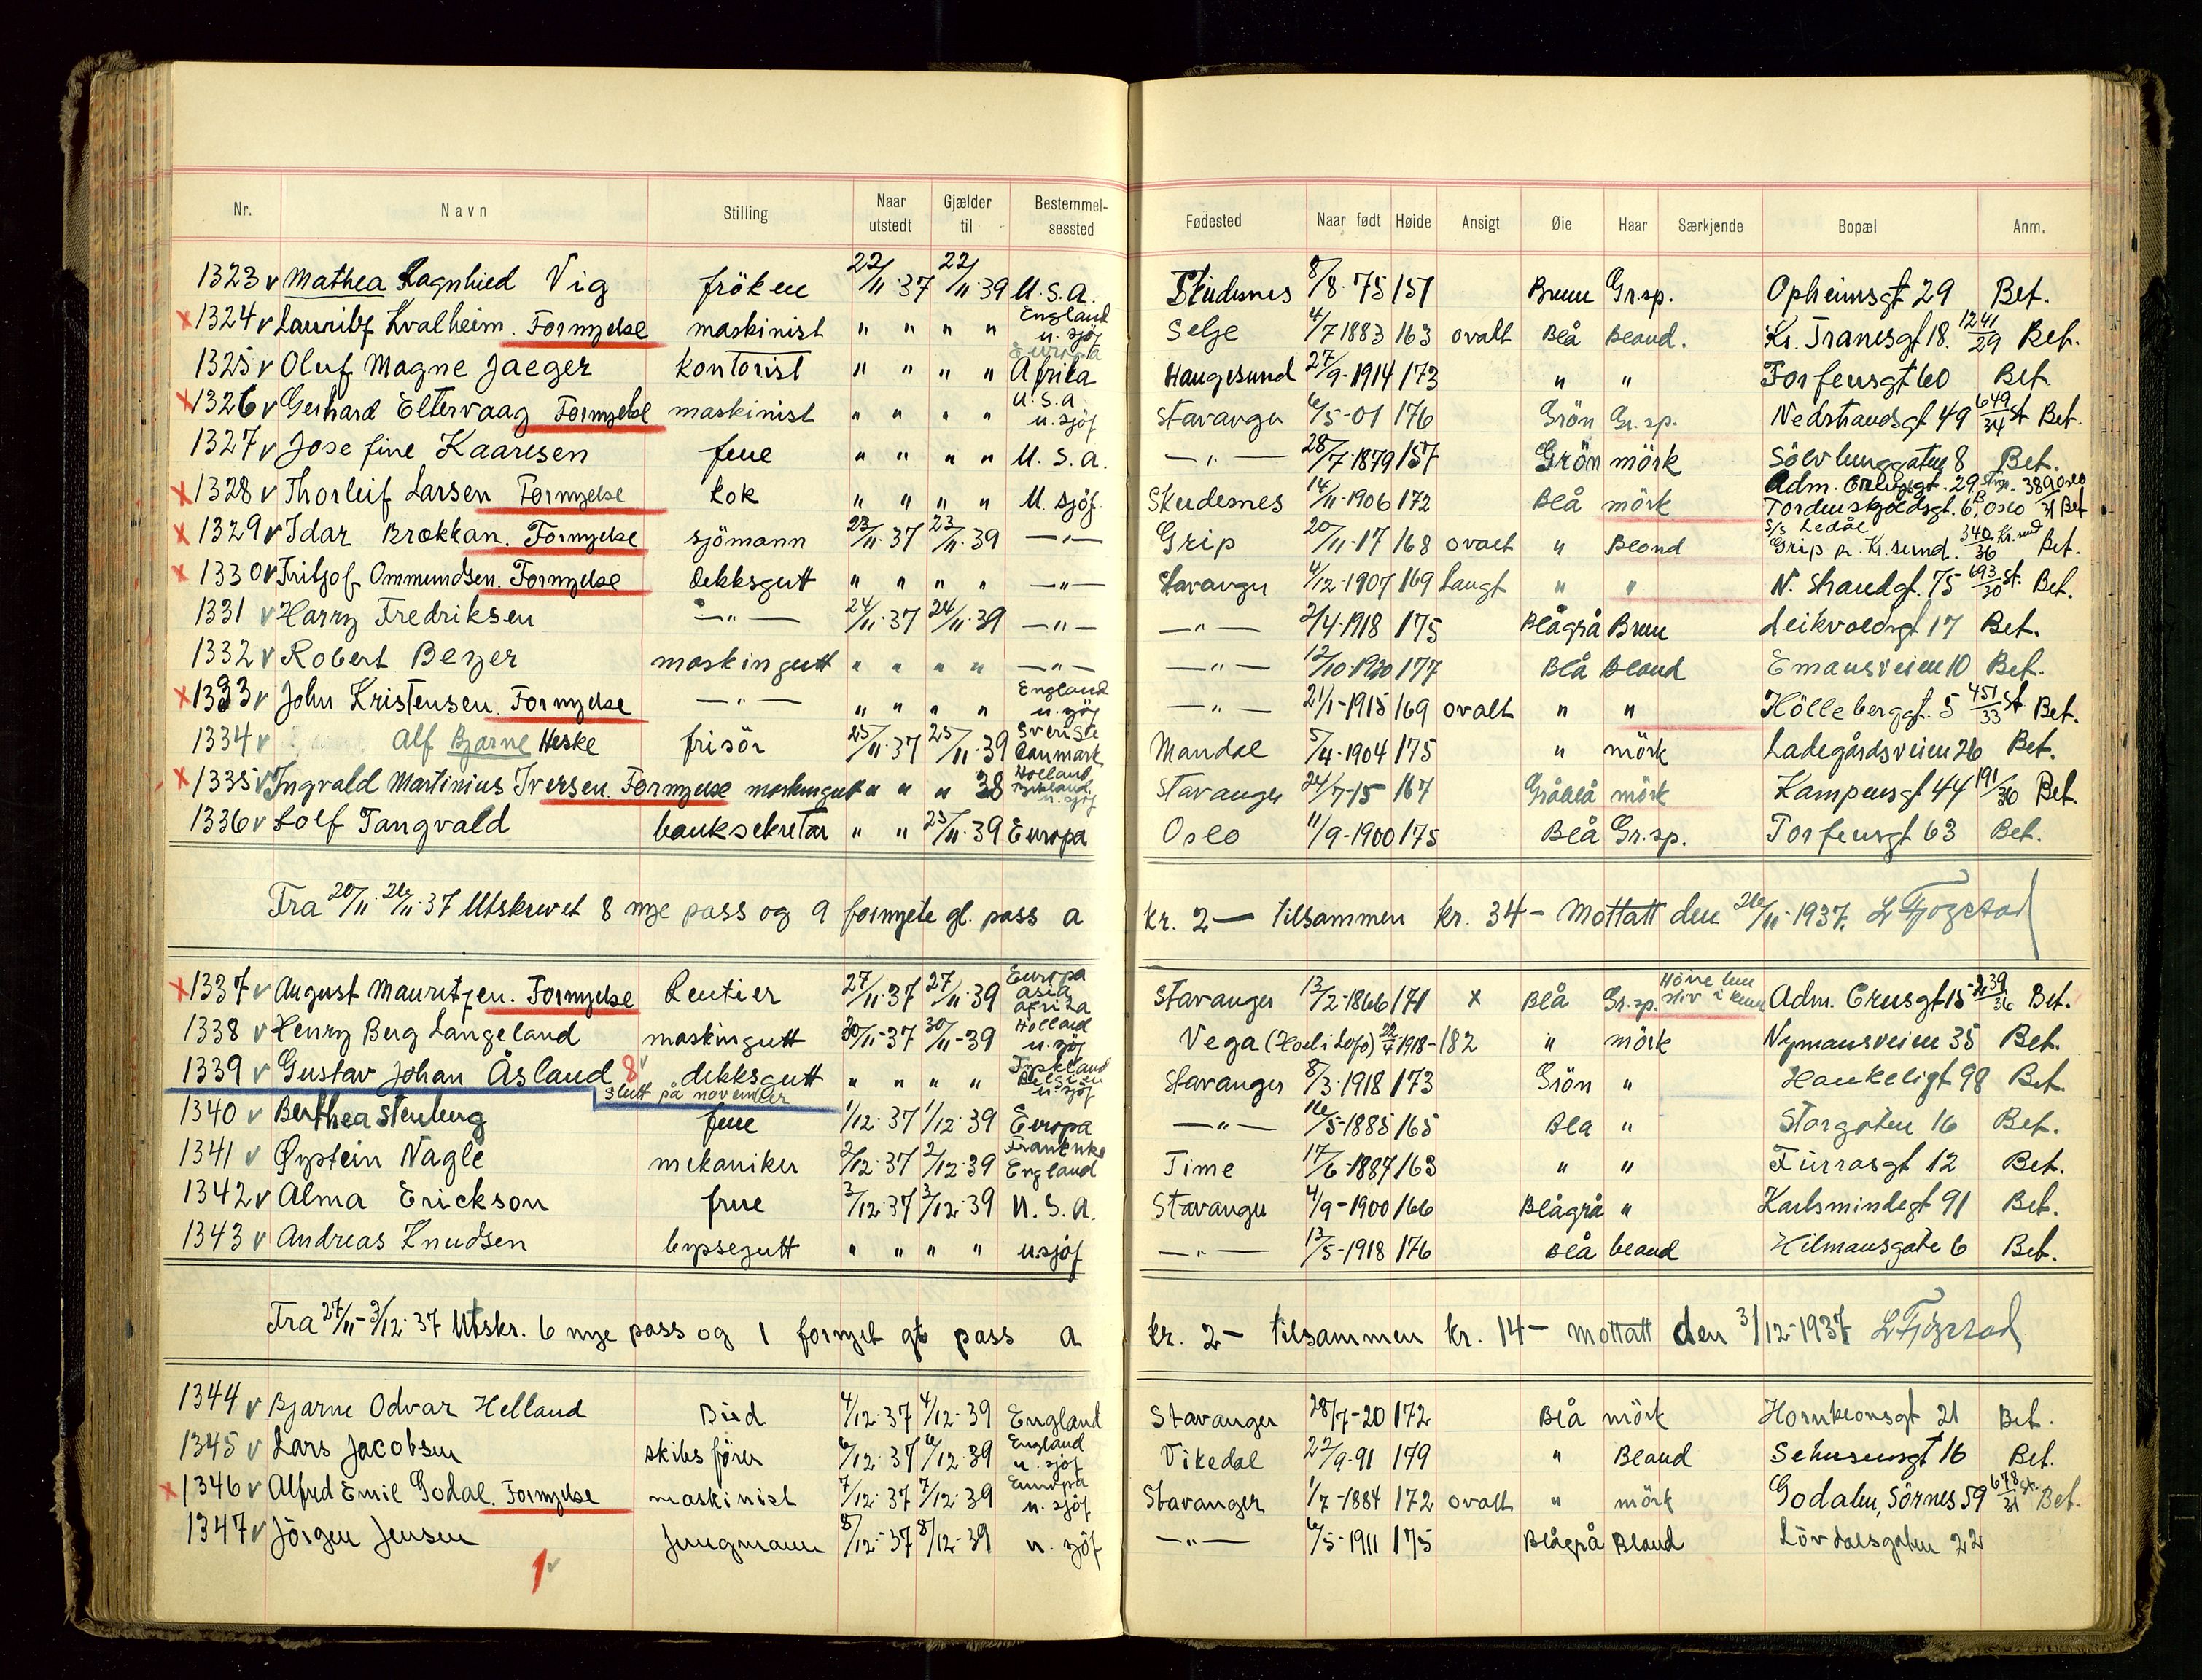 Nr. Navn Stilling Naar utstedt Gjælder til Bestemmelsessted Fødested Naar født Høide Ansigt Øie Haar Særkjende Bopæl Anm.
1323 v Mathea Ragnhied Vig fröken 22/11·37 22/11·39 U.S.A. Skudesnes 8/8·75 157 Brun Gr.sp. Opheimsgt 29 Bet.
x 1324 v Lauritz Kvalheim. Fornyelse maskinist " " " " England u. sjöf Selje 4/7 1883 163 ovalt Blå Blond. Kr. Tranesgt 18. 1241/29 Bet.
1325 v Oluf Magne Jaeger kontorist " " " " Europa Afrika Haugesund 27/9-1914 173 " " Torfeusgt 60 Bet
x 1326 v Gerhard Eltervaag Fornyelse maskinist " " " " U.S.A u. sjöf Stavanger 6/5-01 176 Grön Gr.sp. Nedstrandsgt 49 649/34 St Bet.
1327 v Josefine Kaaresen frue " " " " U.S.A. —"— 28/7·1879 157 Grön mörk Sölvberggaten 8 Bet.
x 1328 v Thorleif Larsen Fornyelse kok " " " " U. sjöf. Skudesnes 14/11-1906 172 Blå mörk Tordenskjoldsgt. 6B Oslo Bet
x 1329 v Idar Brokkan. Fornyelse sjömann 23/11·37 23/11·39 —"— Grip 20/11-17 168 ovalt " Blond S/S Ledål Grip pr. Kr.sund. 340/36 Kr.sund Bet.
x 1330 v Fritjof Ommundsen. Fornyelse dekksgutt " " " " —"— Stavanger 4/12-1907 169 Langt " " N. Strandgt. 75 693/30 St. Bet.
1331 v Harry Fredriksen —"— 24/11·37 24/11·39 —"— —"— 2/4-1918 175 Blågrå Brun Leikvoldsgt 17 Bet.
1332 v Robert Beyer maskingutt " " " " —"— —"— 12/10-1920 177 Blå Blond Emausveien 10 Bet.
x 1333 v John Kristensen. Fornyelse —"— " " " " England u. sjöf —"— 21/1-1915 169 ovalt " " Hölleberggt. 5 451/33 St Bet.
1334 v Alf Bjarne Heske frisör 25/11·37 25/11·39 Sverige Danmark Mandal 5/4-1904 175 " mörk Ladegårdsveien 26 Bet.
x 1335 v Ingvald Martinius Iversen. Fornyelse maskingutt " " " 38 Holland Tyskland u. sjöf Stavanger 24/7-15 167 Gråblå mörk Kampensgt 44 191/36 Bet.
1336 v Rolf Tangvald banksekretær " " 25/11·39 Europa Oslo 11/9-1900 175 Blå Gr.sp. Torfeusgt 63 Bet.
Fra 20/11-26/11·37 Utskrevet 8 nye pass og 9 fornyete gl. pass a kr. 2— tilsammen kr. 34- Mottatt den 26/11-1937. L Fjogstad
x 1337 v August Mauritzen. Fornyelse Rentier 27/11·37 27/11·39 Europa Asia Afrika Stavanger 13/2-1866 171 x Blå Gr.sp. Höire ben stiv i kne Adm. Crusgt 15 239/36 Bet.
1338 v Henry Berg Langeland maskingutt 30/11-37 30/11-39 Holland u. sjöf Vega 22/4 1918- 182 " mörk Nymansveien 35 Bet.
1339 v Gustav Johan Åsland 8 v dekksgutt " " " " Tyskland Belgien u. sjöf Stavanger 8/3-1918 173 Grön " Haukeligt 98 Bet.
slutt på november
1340 v Berthea Stenberg frue 1/12·37 1/12·39 Europa —"— 16/5-1885 165 Blå " Storgaten 16 Bet.
1341 v Øystein Nagle mekaniker 2/12·37 2/12·39 Frankrike England Time 17/6-1887 163 " " Furrasgt 12 Bet.
1342 v Alma Erickson frue 3/12·37 3/12·39 U.S.A. Stavanger 4/9-1900 166 Blågrå " Karlsmindegt 91 Bet.
1343 v Andreas Knudsen byssegutt " " " " u.sjöf —"— 13/5-1918 176 Blå blond Hilmansgate 6 Bet.
Fra 27/11-3/12·37 Utskr. 6 nye pass og 1 fornyet gl pass a kr. 2- tilsammen kr. 14- Mottatt den 3/12-1937 L Fjogstad
1344 v Bjarne Odvar Helland Bud 4/12·37 4/12·39 England Stavanger 28/7-20 172 Blå mörk Hornkleonsgt 21 Bet.
1345 v Lars Jacobsen skibsförer 6/12·37 6/12·39 England u. sjöf Vikedal 22/9-91 179 " Blond Sehusensgt 16 Bet.
x 1346 v Alfred Emil Godal. Fornyelse maskinist 7/12·37 7/12·39 Europa u. sjöf Stavanger 1/7-1884 172 ovalt " mörk Godalen, Sörnes 59 678/31 St. Bet.
1347 v Jörgen Jensen Jungmann 8/12-37 8/12-39 u. sjöf —"— 6/5-1911 175 Blågrå Blond Lövdalsgaten 22
1 v